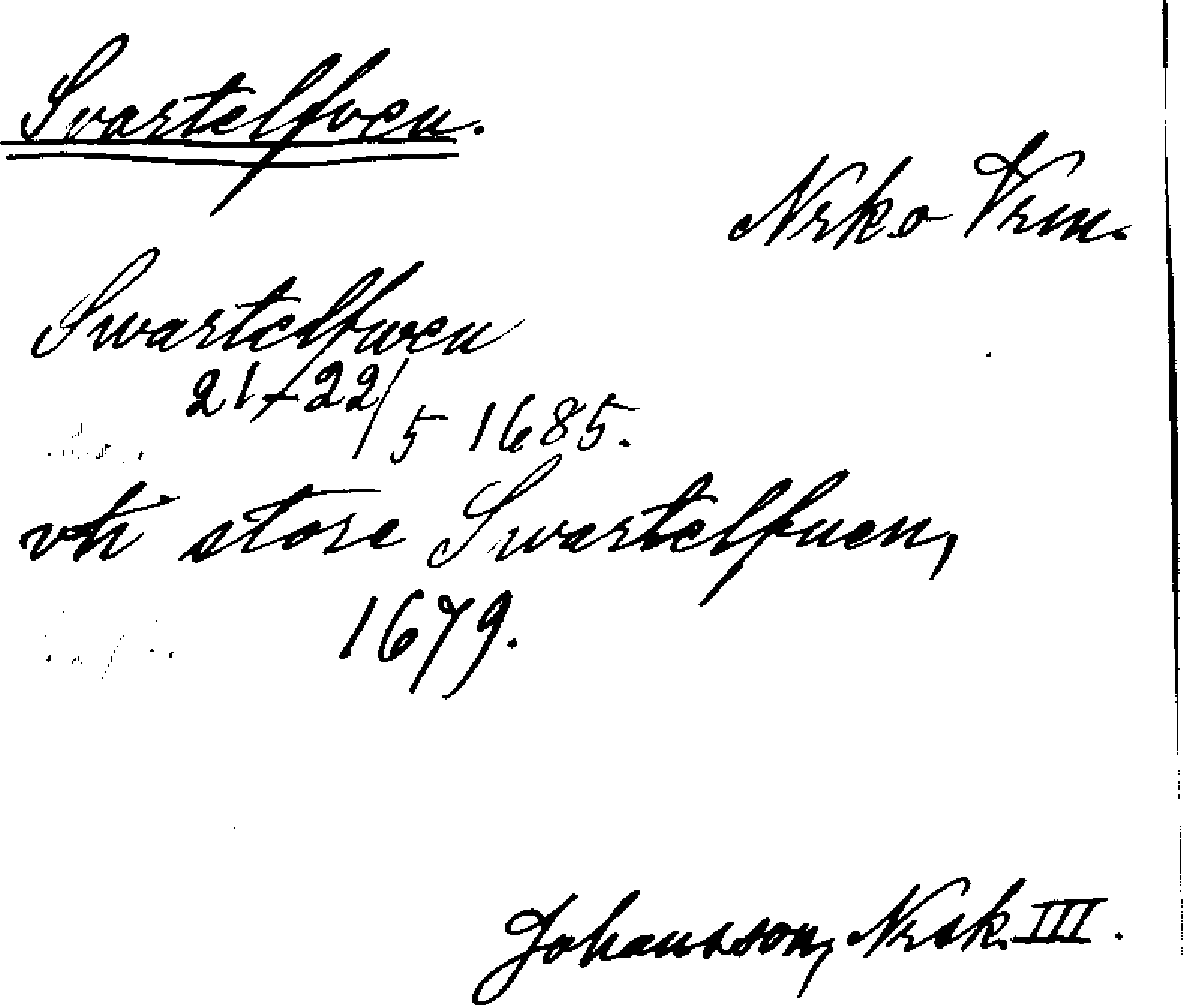 Svartelfven.
Nrko Vrm.
Swartelfwen
21+22/5 1685.
vti store Swartelfuen,
1679.
Johansson, Nrsk. III.